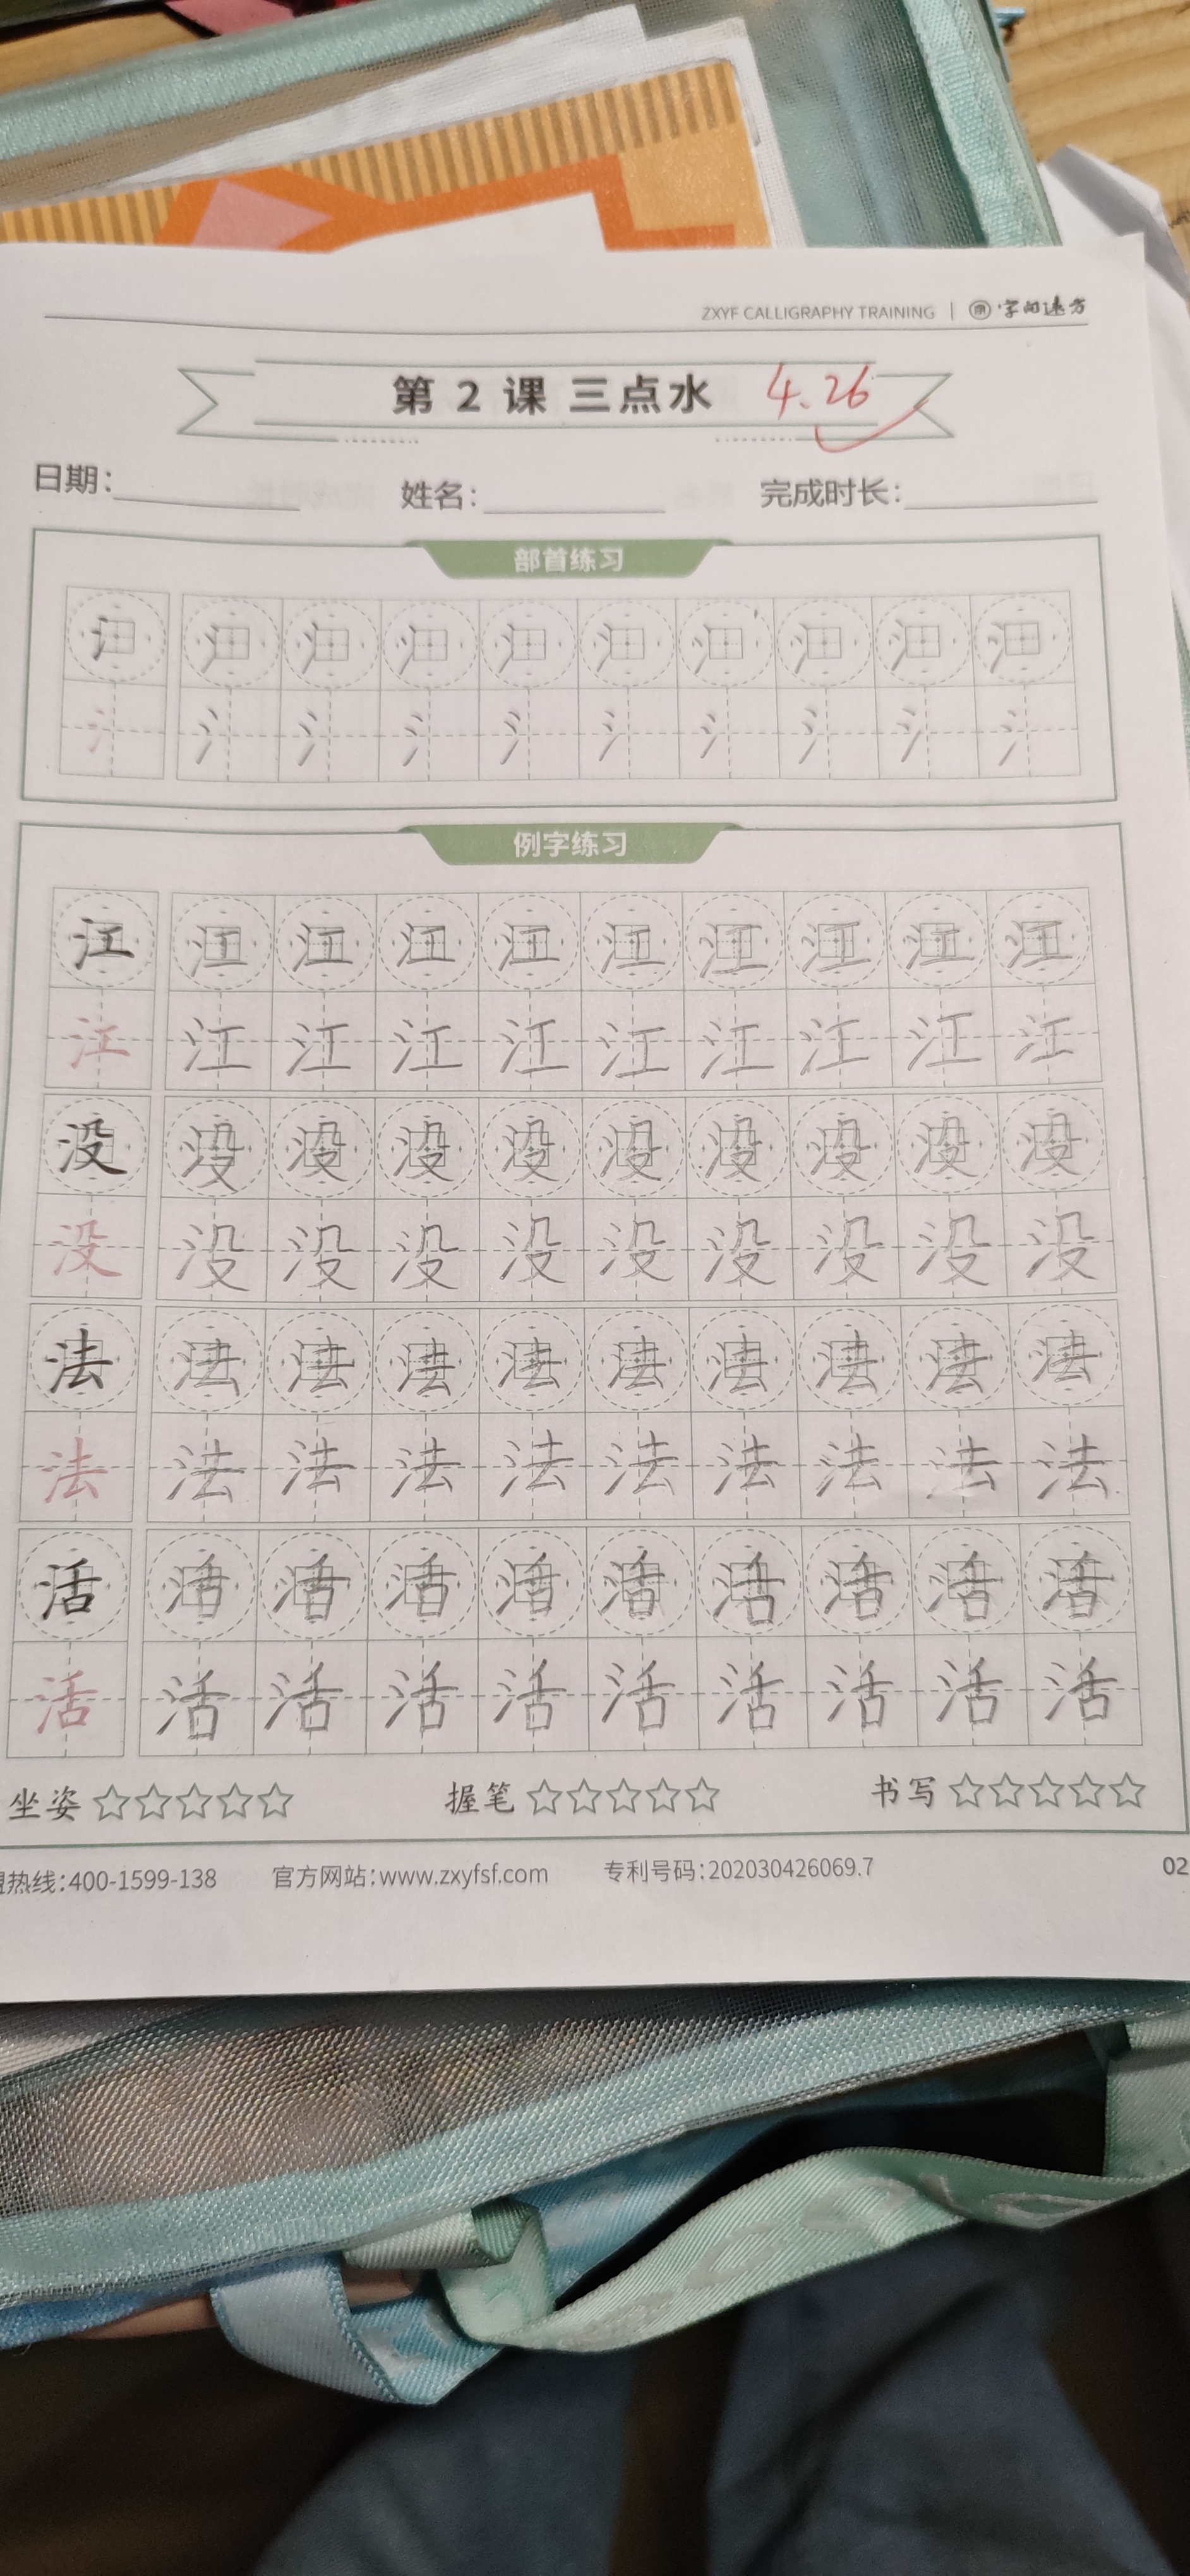 ZXYF CALLIGRAPHY TRAINING | 字阅远方
第 2 课 三点水 4.26
日期: 姓名: 完成时长:
部首练习
氵 氵 氵 氵 氵 氵 氵 氵 氵 氵
氵 氵 氵 氵 氵 氵 氵 氵 氵 氵
例字练习
江 江 江 江 江 江 江 江 江 江
江 江 江 江 江 江 江 江 江 江
没 没 没 没 没 没 没 没 没 没
没 没 没 没 没 没 没 没 没 没
法 法 法 法 法 法 法 法 法 法
法 法 法 法 法 法 法 法 法 法
活 活 活 活 活 活 活 活 活 活
活 活 活 活 活 活 活 活 活 活
坐姿 ☆☆☆☆☆ 握笔 ☆☆☆☆☆ 书写 ☆☆☆☆☆
热线:400-1599-138 官方网站:www.zxyfsf.com 专利号码:202030426069.7 02